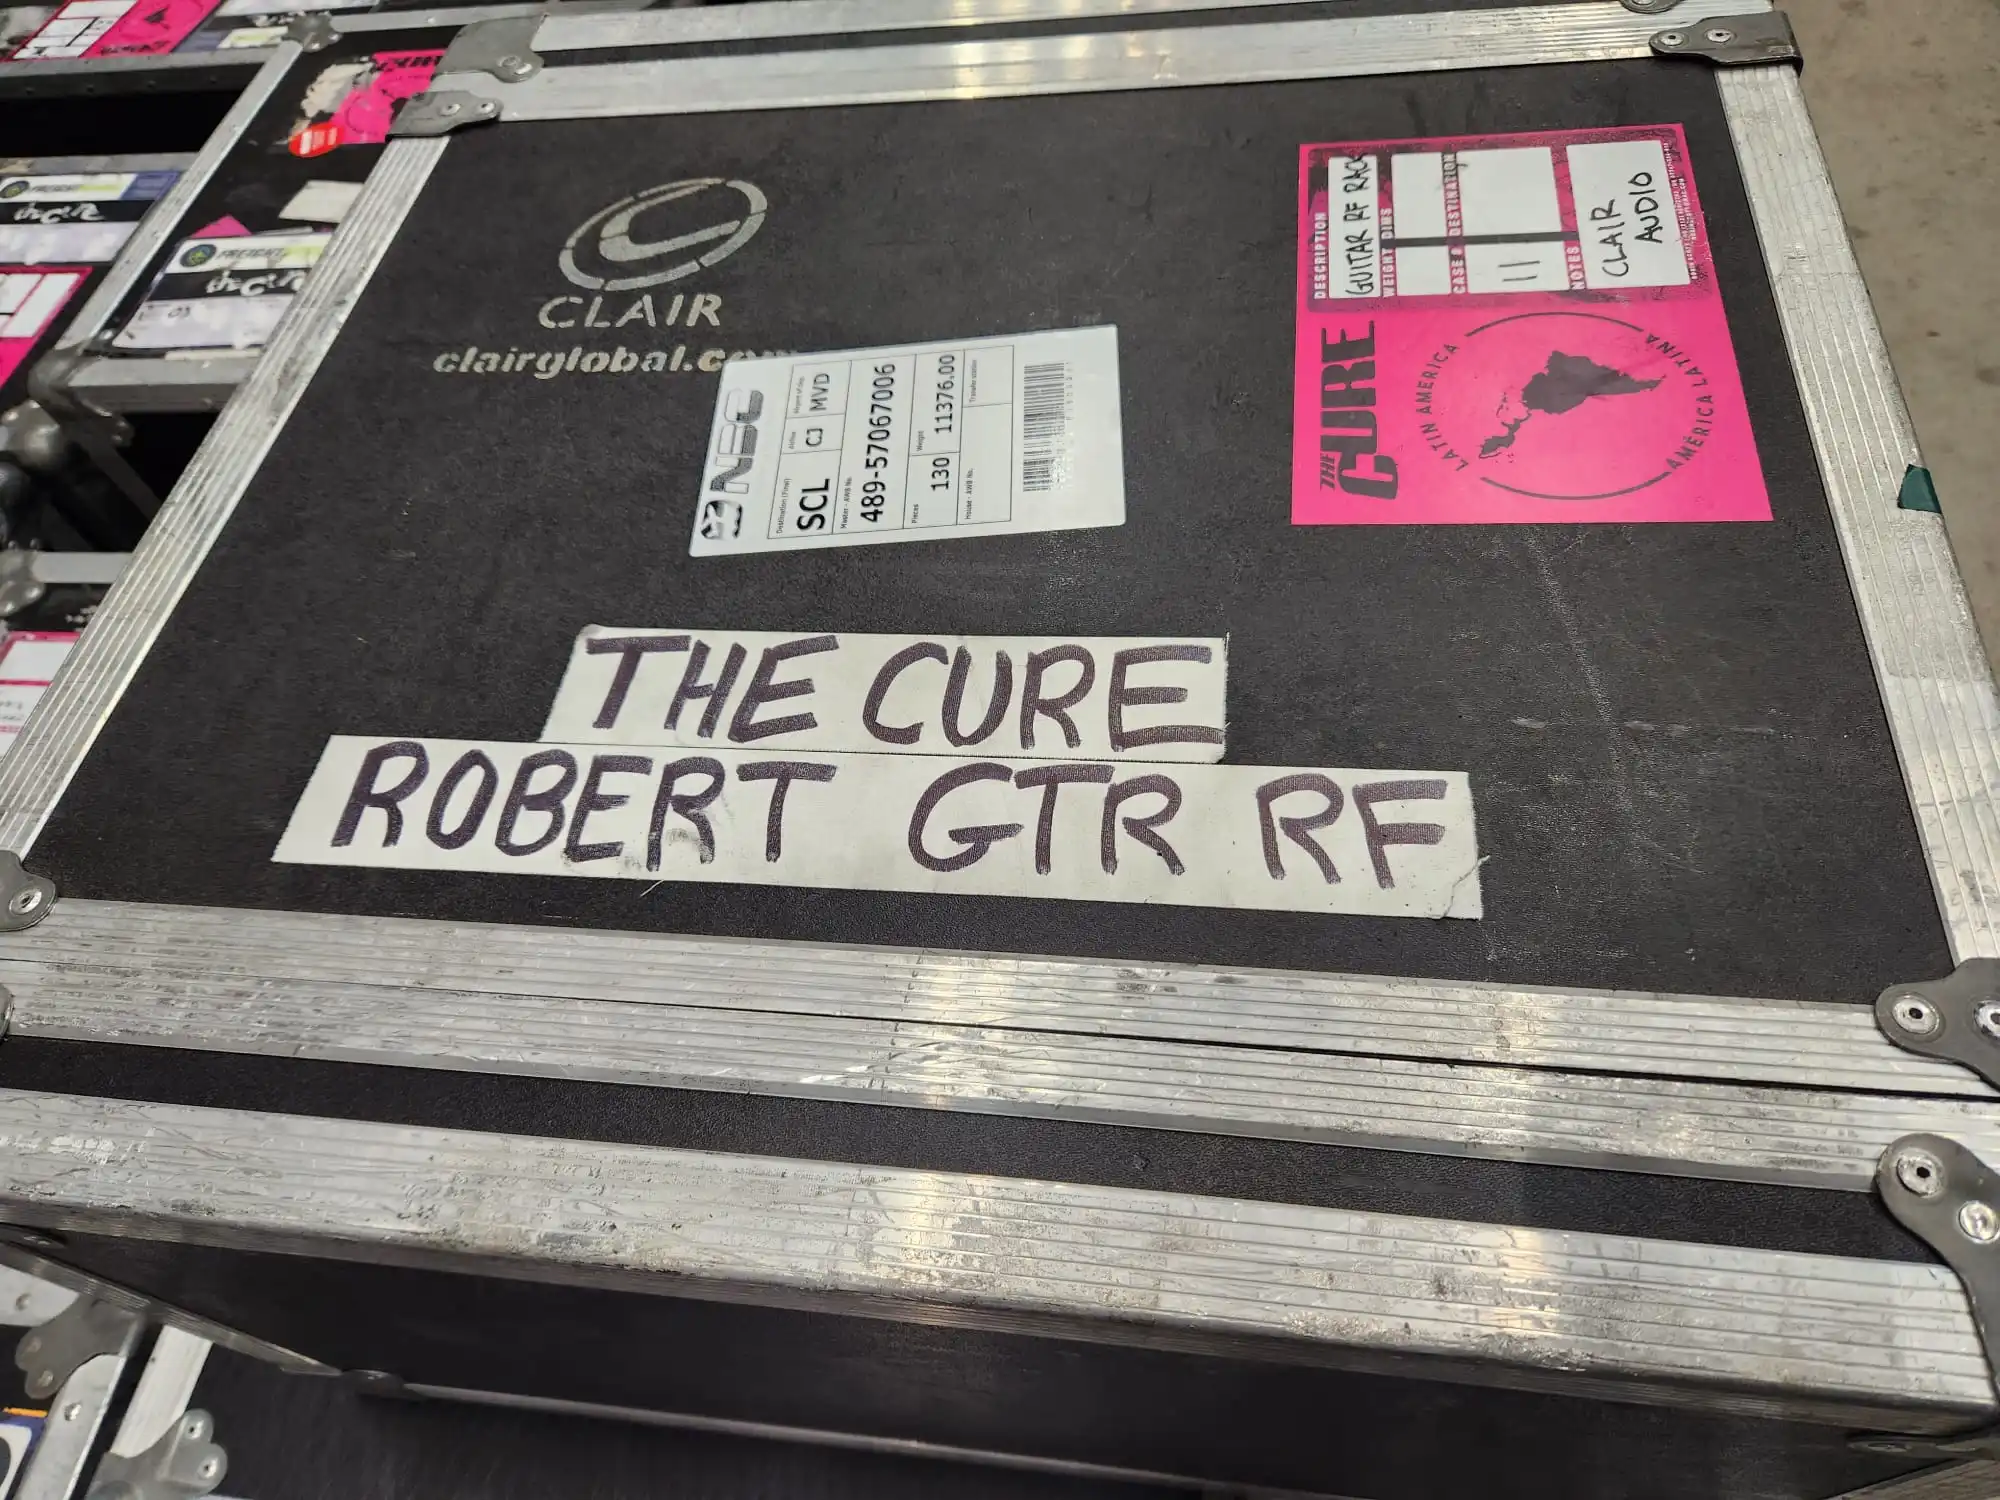 CLAIR
clairglobal.com
Destination (Final)
SCL
Airline
CJ
Airport of dep.
MVD
Master - AWB No.
489-57067006
Pieces
130
Weight
11376.00
House - AWB No.
Transfer station
DESCRIPTION
GUITAR RF RACK
WEIGHT DIMS
CASE # DESTINATION
11
NOTES
CLAIR
AUDIO
THE
CURE
LATIN AMERICA
AMÉRICA LATINA
THE CURE
ROBERT GTR RF
FREIGHT
THE CURE
FREIGHT
THE CURE